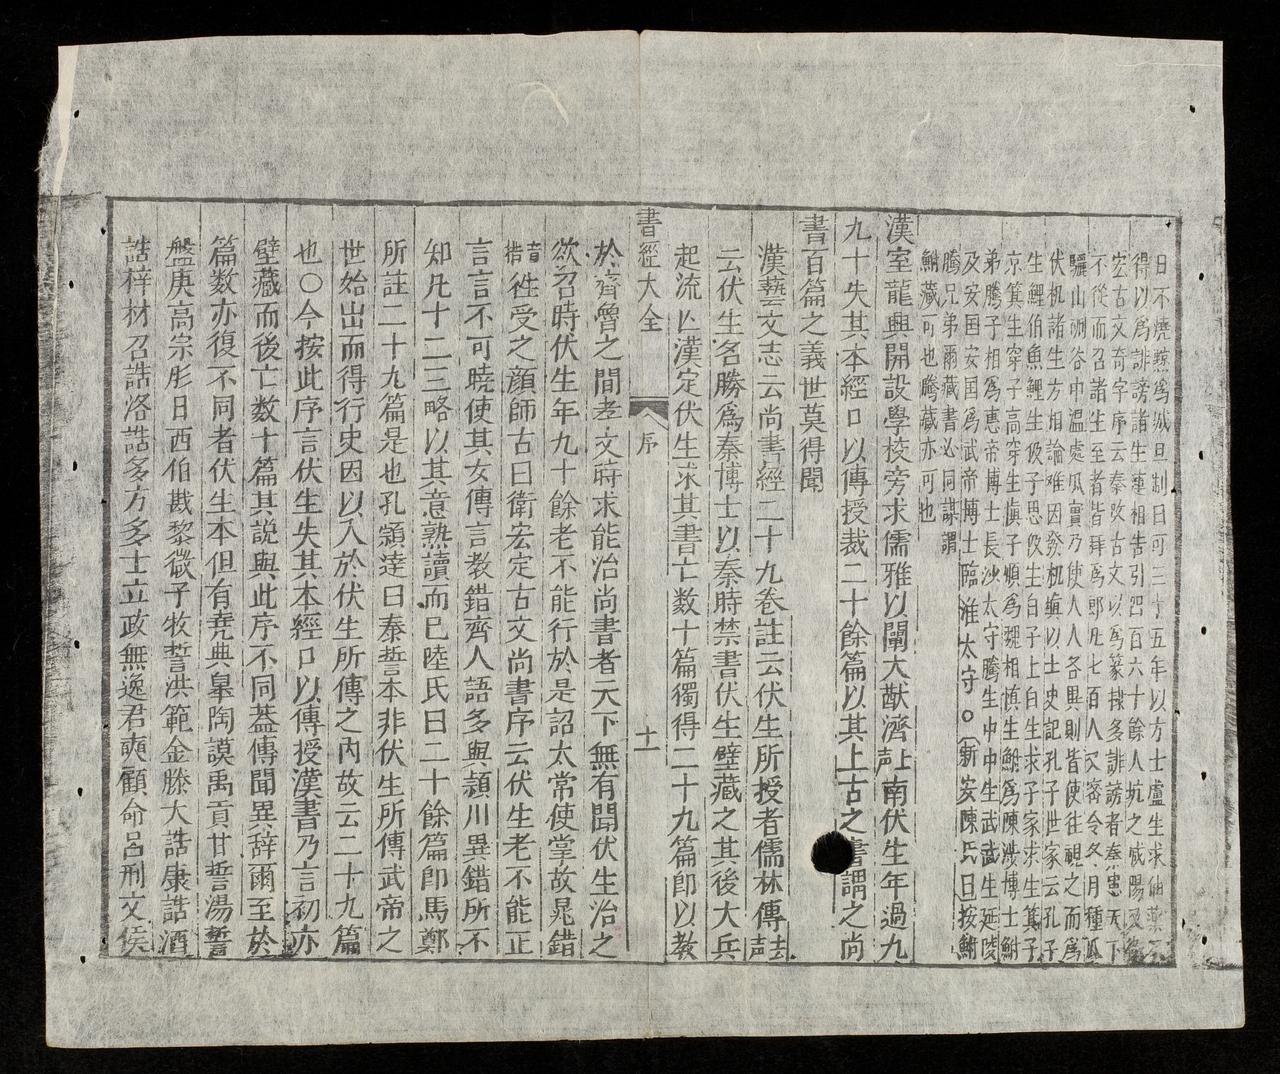 日不燒黥爲城旦制日可三十五年以方士盧生求仙藥不
得以爲誹謗諸生連相告引四百六十餘人坑之咸陽又衛
宏古文奇字序云秦改古文以爲篆隸多誹謗者秦患天下
不從而召諸生至者皆拜爲郎凡七百人又密令冬月種瓜
驪山硎谷中溫處瓜實乃使人人各異則皆使往視之而爲
伏机諸生方相論难因發机塡以土史記孔子世家云孔子
生鯉伯魚鯉生伋子思伋生白子上白生求子家求生箕子
京箕生穿子高穿生慎子順爲魏相慎生鮒爲陳涉博士鮒
弟騰子相爲惠帝博士長沙太守騰生中中生武武生延陵
及安国安国爲武帝博士臨淮太守○新安陳氏曰按鮒
騰兄弟爾藏書必同謀謂
鮒藏可也騰藏亦可也
漢室龍興開設學校旁求儒雅以闡大猷濟上聲南伏生年過九
九十失其本經口以傳授裁二十餘篇以其上古之書謂之尚
書百篇之義世莫得聞
漢藝文志云尚書經二十九卷註云伏生所授者儒林傳去聲
云伏生名勝爲秦博士以秦時禁書伏生壁藏之其後大兵
起流亡漢定伏生求其書亡数十篇獨得二十九篇即以教
書經大全 序 十一
於齊魯之間孝文時求能治尚書者天下無有聞伏生治之
欲召時伏生年九十餘老不能行於是詔太常使掌故晁錯
音措徃受之顔師古曰衛宏定古文尚書序云伏生老不能正
言言不可曉使其女傳言教錯齊人語多與潁川異錯所不
知凡十二三略以其意熟讀而已陸氏曰二十餘篇即馬鄭
所註二十九篇是也孔潁逹曰泰誓本非伏生所傳武帝之
世始出而得行史因以入於伏生所傳之内故云二十九篇
也○今按此序言伏生失其本經口以傳授漢書乃言初亦
壁藏而後亡数十篇其説與此序不同蓋傳聞異辭爾至於
篇数亦復不同者伏生本但有堯典臯陶謨禹貢甘誓湯誓
盤庚高宗肜日西伯戡黎微子牧誓洪範金縢大誥康誥酒
誥梓材召誥洛誥多方多士立政無逸君奭顧命呂刑文侯